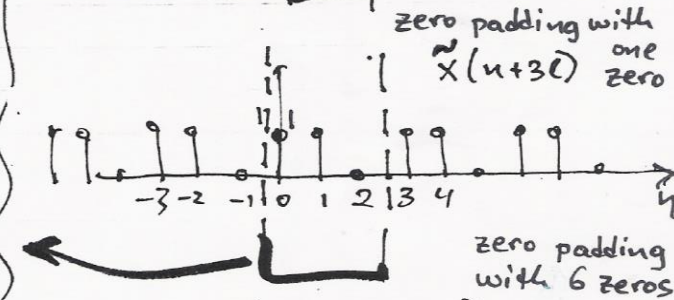 zero padding with
one
x̃(n+3l) zero
1
-3 -2 -1 0 1 2 3 4 n
zero padding
with 6 zeros